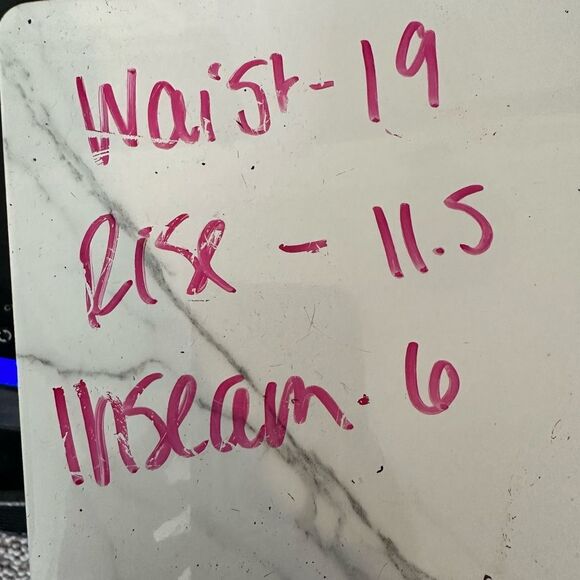 Waist - 19
Rise - 11.5
Inseam - 6